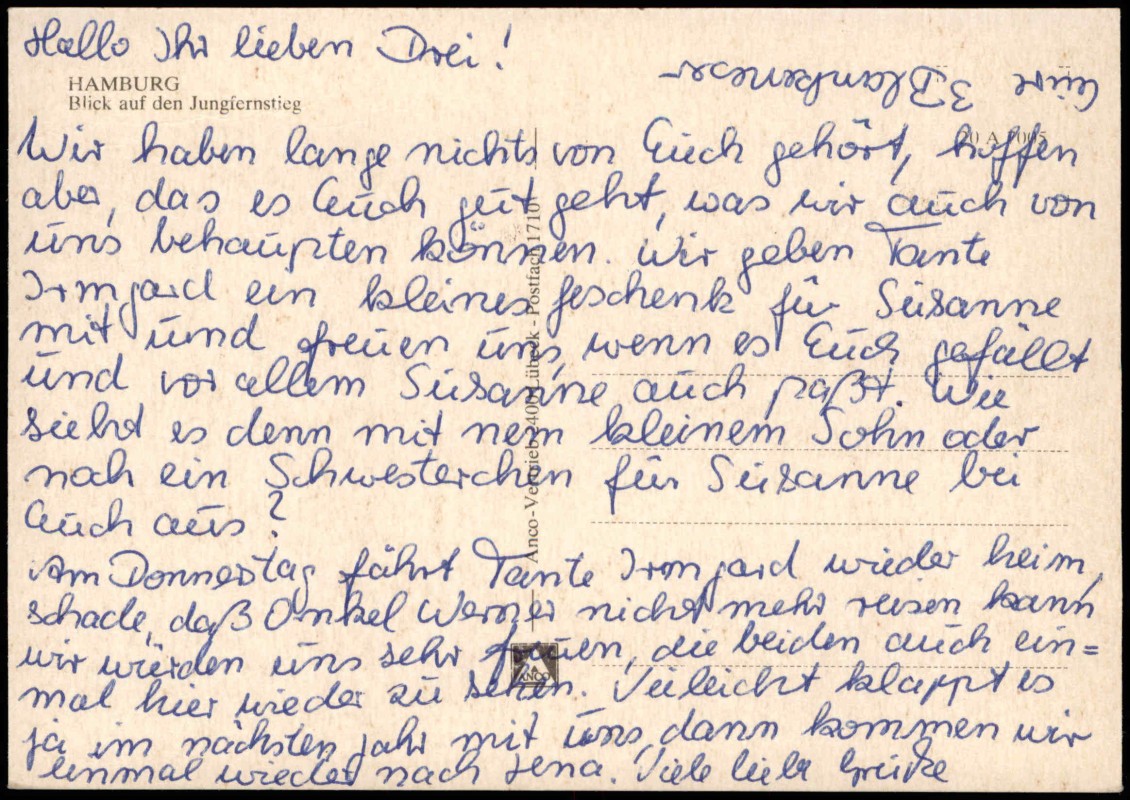 Hallo Ihr lieben Drei!
HAMBURG
Blick auf den Jungfernstieg
Wir haben lange nichts von Euch gehört, hoffen
aber, das es Euch gut geht, was wir auch von
uns behaupten können. Wir geben Tante
Irmgard ein kleines Geschenk für Susanne
mit und freuen uns, wenn es Euch gefällt
und vor allem Susanne auch paßt. Wie
sieht es denn mit nem kleinem Sohn oder
noch ein Schwesterchen für Susanne bei
Euch aus?
Am Donnerstag fährt Tante Irmgard wieder heim,
schade, daß Onkel Werner nicht mehr reisen kann
wir würden uns sehr freuen, die beiden auch ein=
mal hier wieder zu sehen. Vieleicht klappt es
ja im nächsten Jahr mit uns, dann kommen wir
einmal wieder nach Jena. Viele liebe Grüße
Eure 3 Blankeneser
Anco-Vertrieb 2400 Lübeck - Postfach 1710
ANCO